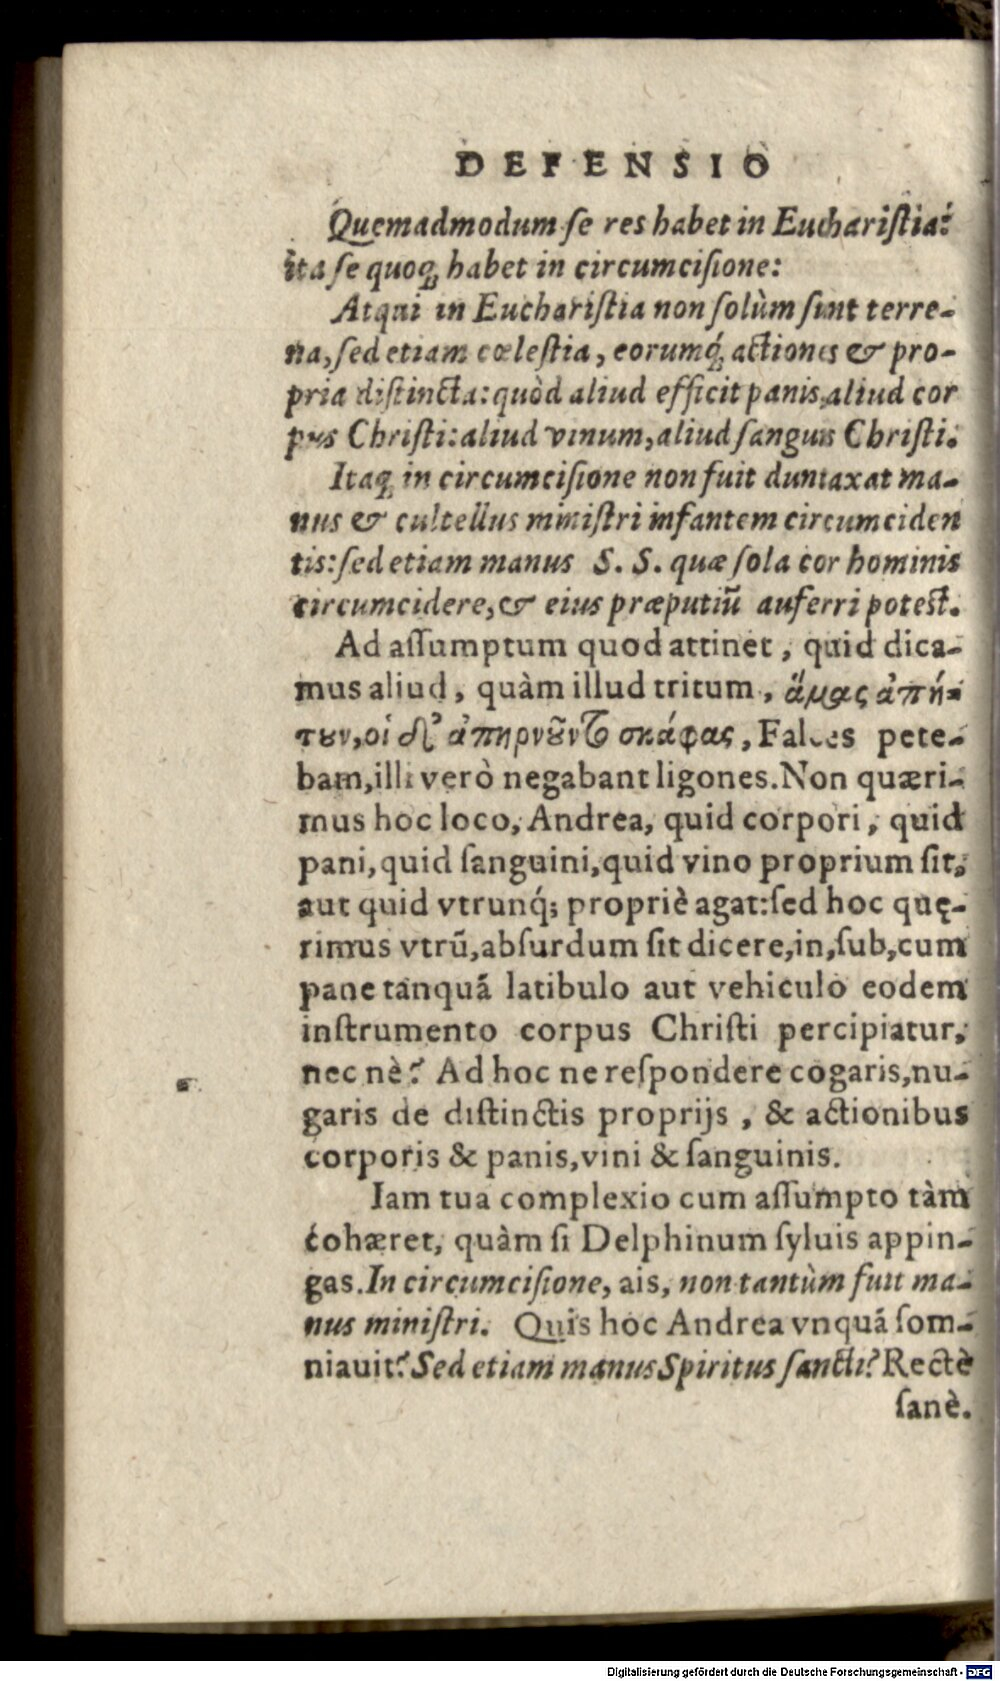 DEFENSIO
Quemadmodum ſe res habet in Euchariſtia:
ita ſe quoq; habet in circumciſione:
Atqui in Euchariſtia non ſolùm ſunt terre-
na, ſed etiam cœleſtia, eorumq́; actiones & pro-
pria diſtincta: quòd aliud efficit panis, aliud cor
pus Chriſti: aliud vinum, aliud ſanguis Chriſti.
Itaq; in circumciſione non fuit duntaxat ma-
nus & cultellus miniſtri infantem circumciden
tis: ſed etiam manus S. S. quæ ſola cor hominis
circumcidere, & eius præputiũ auferri poteſt.
Ad aſſumptum quod attinet, quid dica-
mus aliud, quàm illud tritum, ἄμας ἀπῄ-
τουν, οἱ δ' ἀπηρνοῦντο σκάφας, Falces pete-
bam, illi verò negabant ligones. Non quæri-
mus hoc loco, Andrea, quid corpori, quid
pani, quid ſanguini, quid vino proprium ſit,
aut quid vtrunq́; propriè agat: ſed hoc quę-
rimus vtrũ, abſurdum ſit dicere, in, ſub, cum
pane tanquã latibulo aut vehiculo eodem
inſtrumento corpus Chriſti percipiatur,
nec nè? Ad hoc ne reſpondere cogaris, nu-
garis de diſtinctis proprijs, & actionibus
corporis & panis, vini & ſanguinis.
Iam tua complexio cum aſſumpto tàm
cohæret, quàm ſi Delphinum ſyluis appin-
gas. In circumciſione, ais, non tantùm fuit ma-
nus miniſtri. Quis hoc Andrea vnquã ſom-
niauit? Sed etiam manus Spiritus ſancti? Rectè
ſanè.
Digitalisierung gefördert durch die Deutsche Forschungsgemeinschaft - DFG